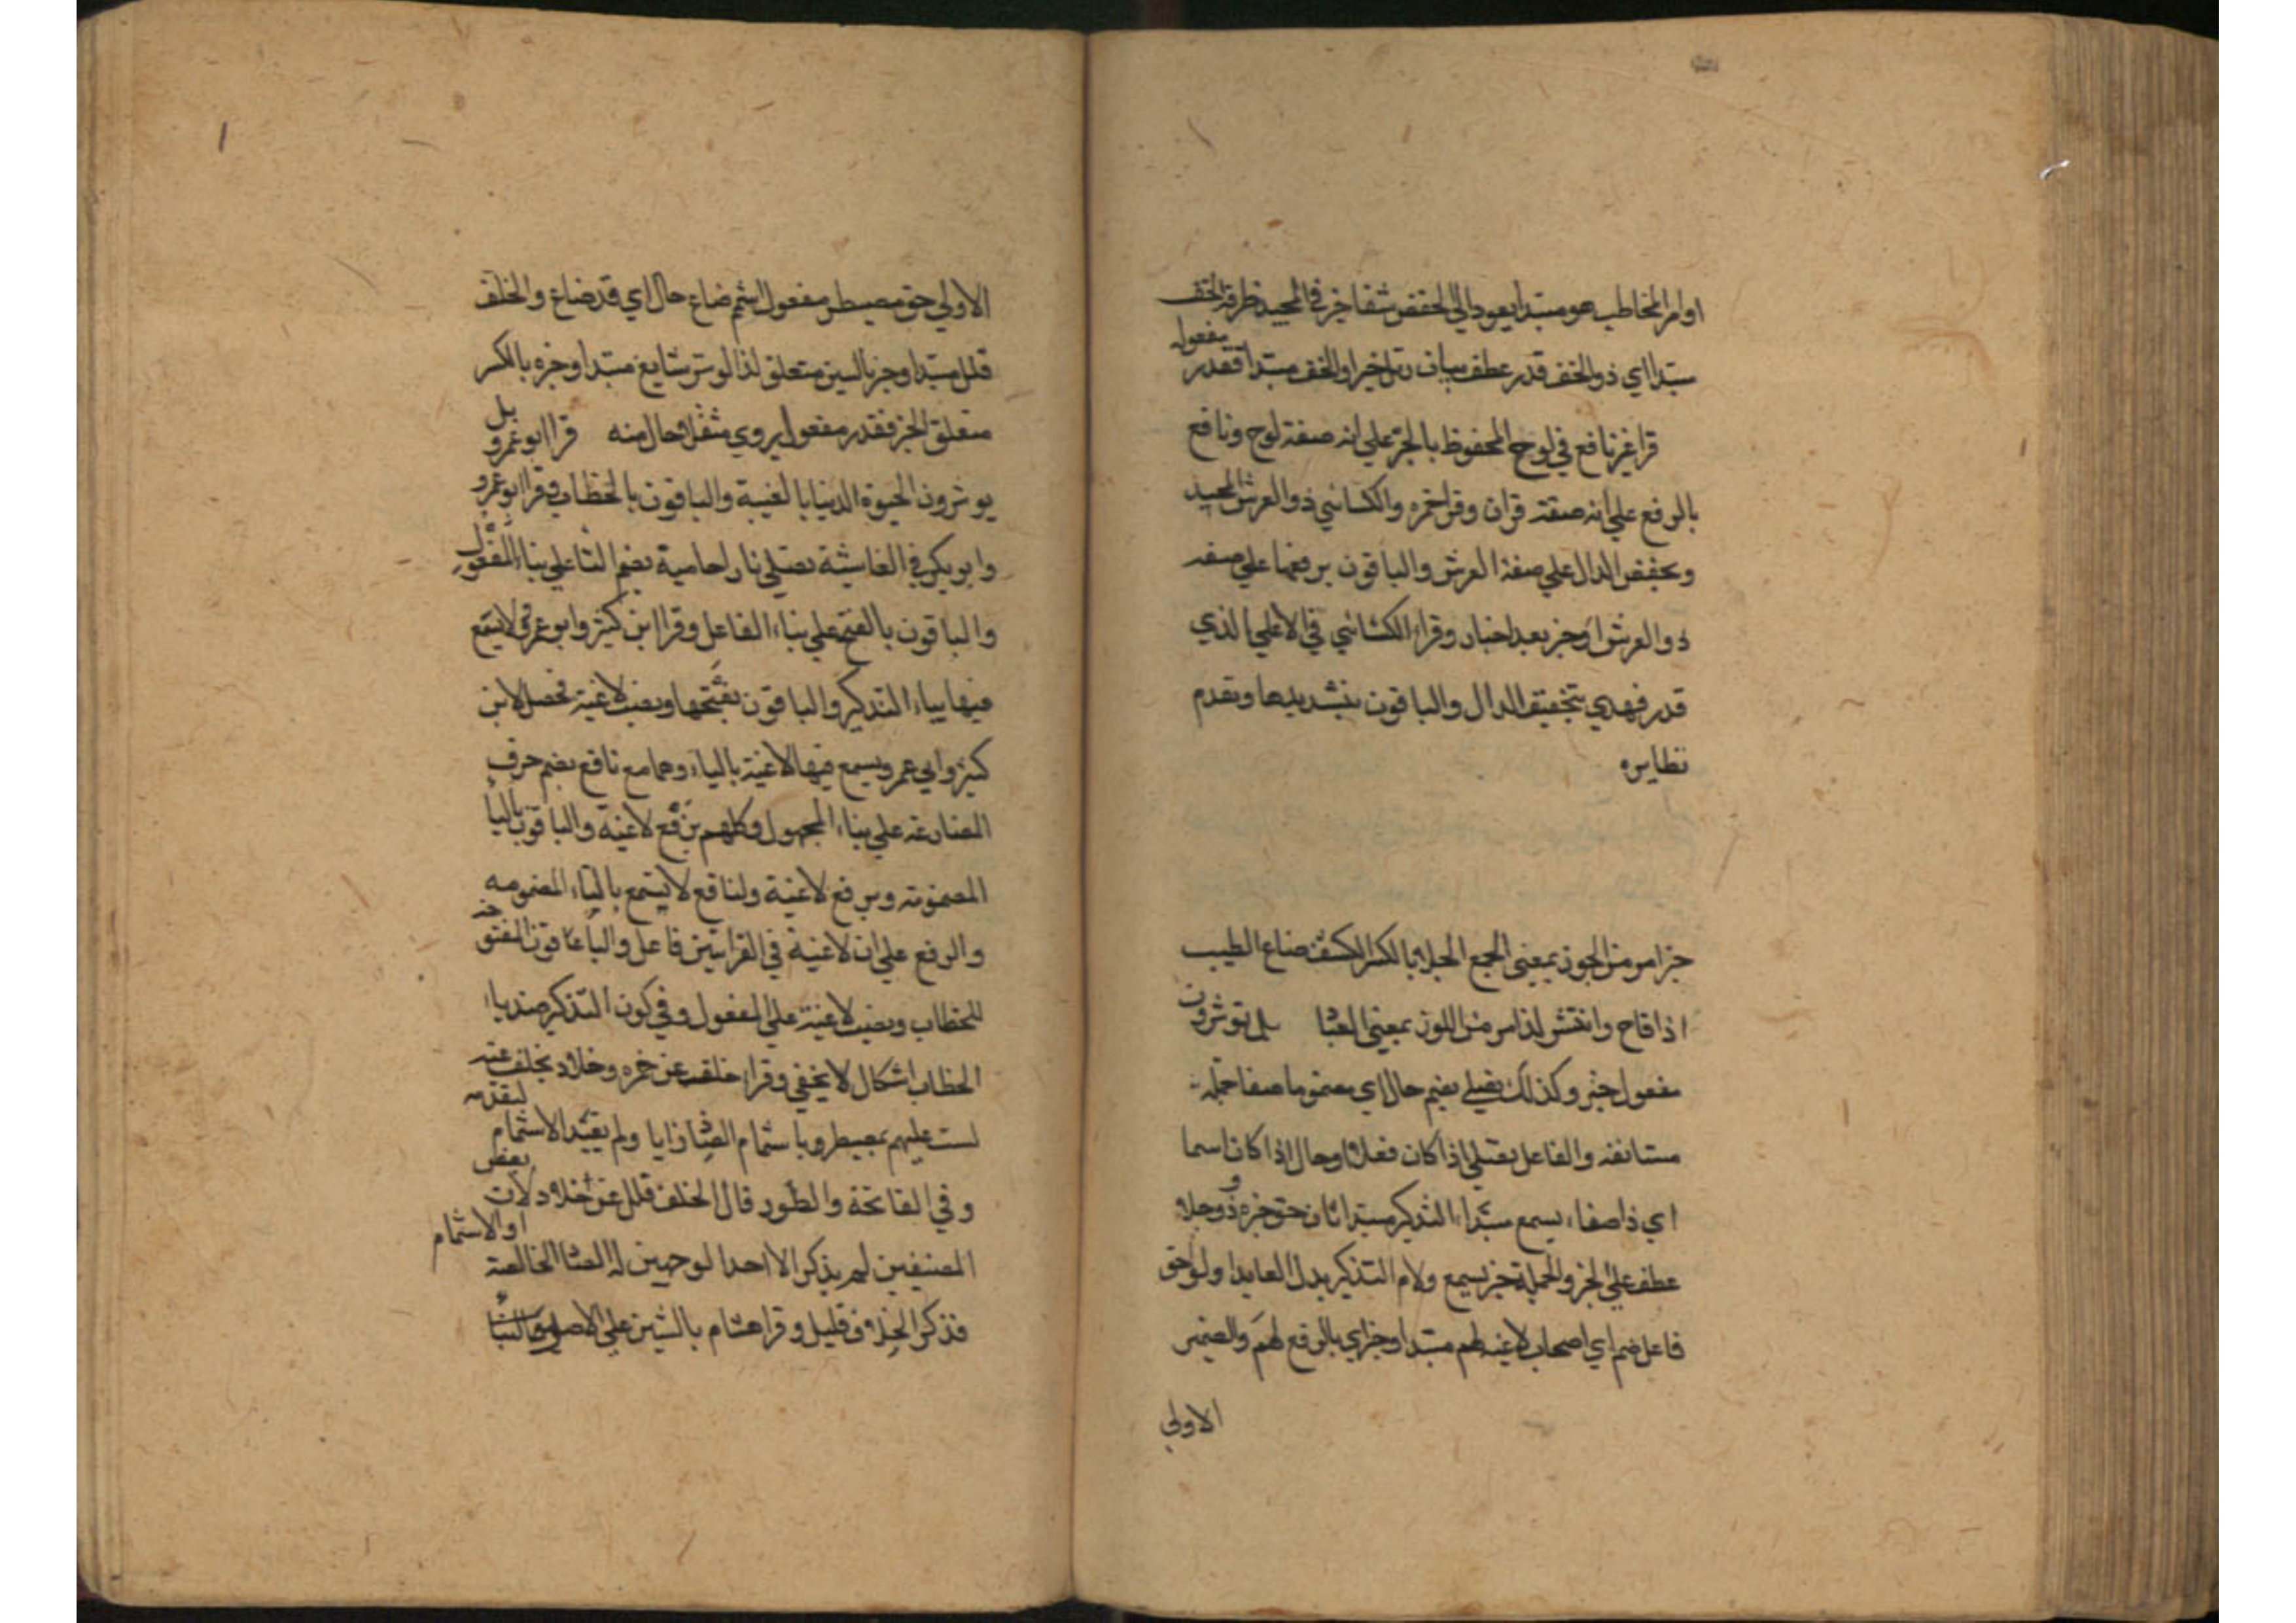 اوامر المخاطب هو مبتدا يعود الي الخفض شفا خبر في المجيد ظرفه الخف
مفعوله
مبتدا اي ذو الخف قدر عطف بيان رتل خبر او الخف مبتدا فقدر
قرا غير نافع في لوح المحفوظ بالجر علي انه صفة لوح ونافع
بالرفع علي انه صفته قران وقرا حمزه والكسائي ذو العرش المجيد
وبخفض الدال علي صفة العرش والباقون برفعها علي صفه
ذو العرش او خبر بعد اخبار وقراء الكسائي في الاعلي الذي
قدر فهدي بتخفيف الدال والباقون بتشديدها وتقدم
نظايره
حز امر من الحوز بمعني الجمع الحبلا بالكسر الكشف ضاع الطيب
اذا فاح وانتشر لذ امر من اللوز بمعني بل توثرون
مفعول حز وكذلك تصلي يضم حال اي مضموما صفا جملة
مستانفه والفاعل تصلي اذا كان فعلا وحال اذا كان اسما
اي ذا صفاء يسمع مبتداء التذكير مبتدا ثان حق خبره وذو جلا
عطف علي الخبر والجملة خبر يسمع ولام التذكير بدل العايد اولو حق
فاعل ضم اي اصحاب لاغيه لهم مبتدا وخبر اي بالرفع لهم والضمير
الاولي
الاولي حق مصيطر مفعول اشمم ضاع حال اي قد ضاع والخلف
قلل مبتدا وخبر بالسين متعلق لذ الوتر شايع مبتدا وخبره بالكسر
متعلق الخبر فقدر مفعول يروي مثقلا حال منه قرا ابو عمرو بل
يوثرون الحيوة الدنيا بالغيبة والباقون بالخطاب وقرا ابو عمرو
وابو بكر في الغاشية تصلي نارا حامية بضم التا علي بناء المفعول
والباقون بالفتح علي بناء الفاعل وقرا ابن كثير وابو عمرو لا يسمع
فيها بياء التذكير والباقون بفتحها ونصب لاغية فحصل لابن
كثير وابي عمرو يسمع فيها لاغية بالياء وهما مع نافع بضم حرف
المضارعه علي بناء المجهول وكلهم برفع لاغية والباقون بالياء
المضمومة وبرفع لاغية ولنافع لا يسمع بالتاء المضمومه
والرفع علي ان لاغية في القراتين فاعل والباقون المفتوحه
للخطاب ونصب لاغية علي المفعول وفي كون التذكير ضد ياء
الخطاب اشكال لا يخفي وقراء خلف عن حمزه وخلاد بخلف عنه
لست عليهم بمصيطر وباشمام الصاد زايا ولم يقيد الاشمام لتقدمه
وفي الفاتحة والطور قال الخلف قلل عن خلاد لان بعض
المصنفين لم يذكر الا احد الوجهين له الصاد الخالصة او الاشمام
فذكر الخلاف قليل وقرا هشام بالسين علي الاصل